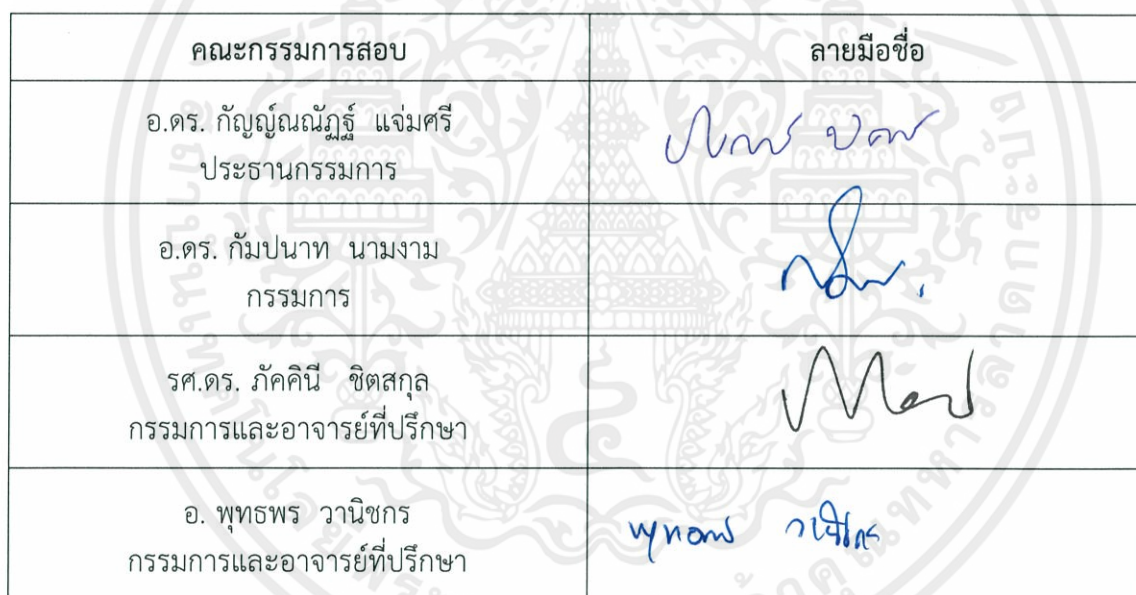 คณะกรรมการสอบ ลายมือชื่อ
อ.ดร. กัญญ์ณณัฏฐ์ แจ่มศรี
ประธานกรรมการ
อ.ดร. กัมปนาท นามงาม
กรรมการ
รศ.ดร. ภัคคินี ชิตสกุล
กรรมการและอาจารย์ที่ปรึกษา
อ. พุทธพร วานิชกร
กรรมการและอาจารย์ที่ปรึกษา